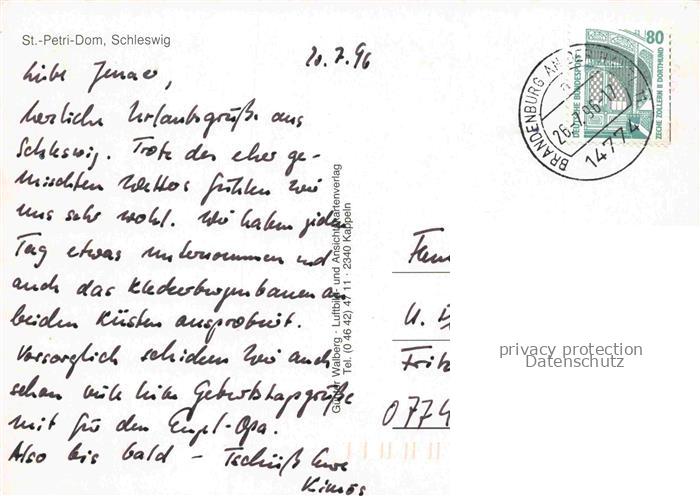 St.-Petri-Dom, Schleswig
20.7.96
Liebe Jenaer,
herzliche Urlaubsgrüße aus
Schleswig. Trotz des eher ge-
mischten Wetters fühlen wir
uns sehr wohl. Wir haben jeden
Tag etwas unternommen und
auch das Kleckerburgenbauen an
beiden Küsten ausprobiert.
Vorsorglich schicken wir auch
schon viele liebe Geburtstagsgrüße
mit für den Engel-Opa.
Also bis bald – Tschüß Eure
Günter Walberg · Luftbild- und Ansichtskartenverlag
Tel. (0 46 42) 47 11 · 2340 Kappeln
DEUTSCHE BUNDESPOST
80
ZECHE ZOLLERN II DORTMUND
BRANDENBURG AN DER
26.7.96-17
14774
Fritz
0774
privacy protection
Datenschutz